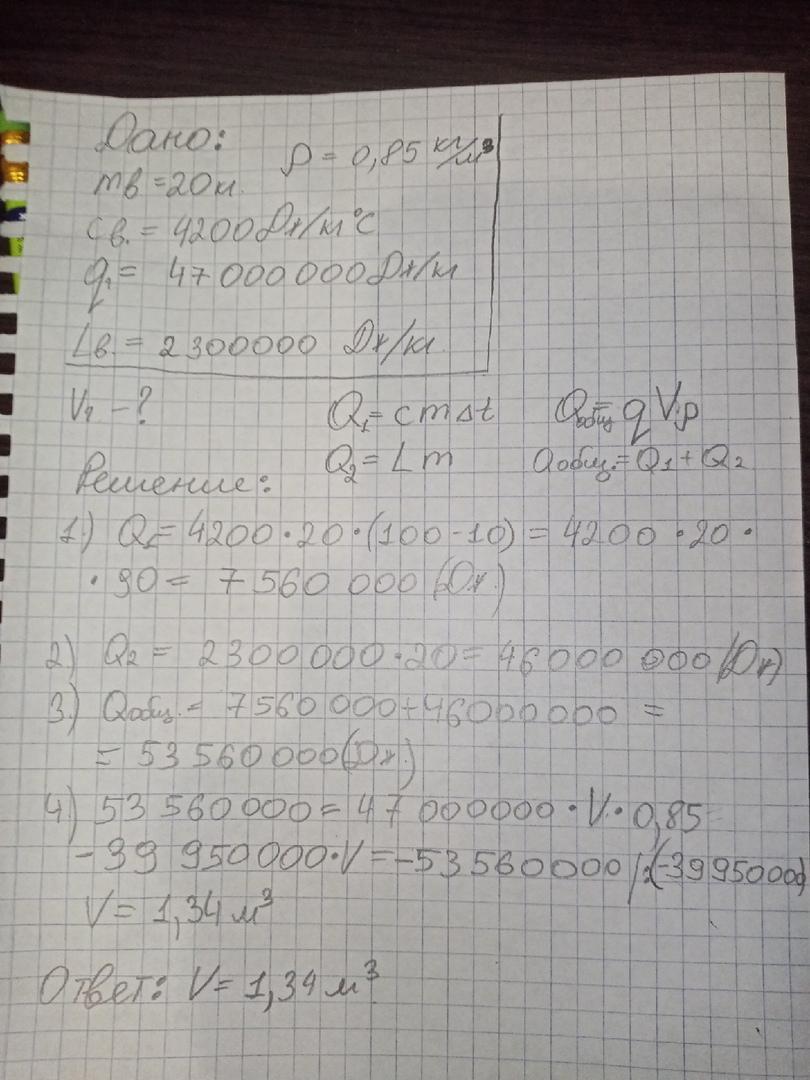 Дано:
ρ = 0,85 кг/м³
mв = 20кг.
cв. = 4200 Дж/кг°С
q₁ = 47 000 000 Дж/кг
Lв. = 2300000 Дж/кг
V₁ - ?
Q₁ = cmΔt
Qобщ = qVρ
Q₂ = Lm
Qобщ. = Q₁ + Q₂
Решение:
1) Q₁ = 4200 · 20 · (100 - 10) = 4200 · 20 ·
· 90 = 7 560 000 (Дж.)
2) Q₂ = 2300 000 · 20 = 46000 000 (Дж)
3) Qобщ. = 7560 000 + 46000000 =
= 53 560 000 (Дж.)
4) 53 560 000 = 47 000000 · V · 0,85
-39 950000 · V = -53560000 /:(-39950000)
V = 1,34 м³
Ответ: V = 1,34 м³